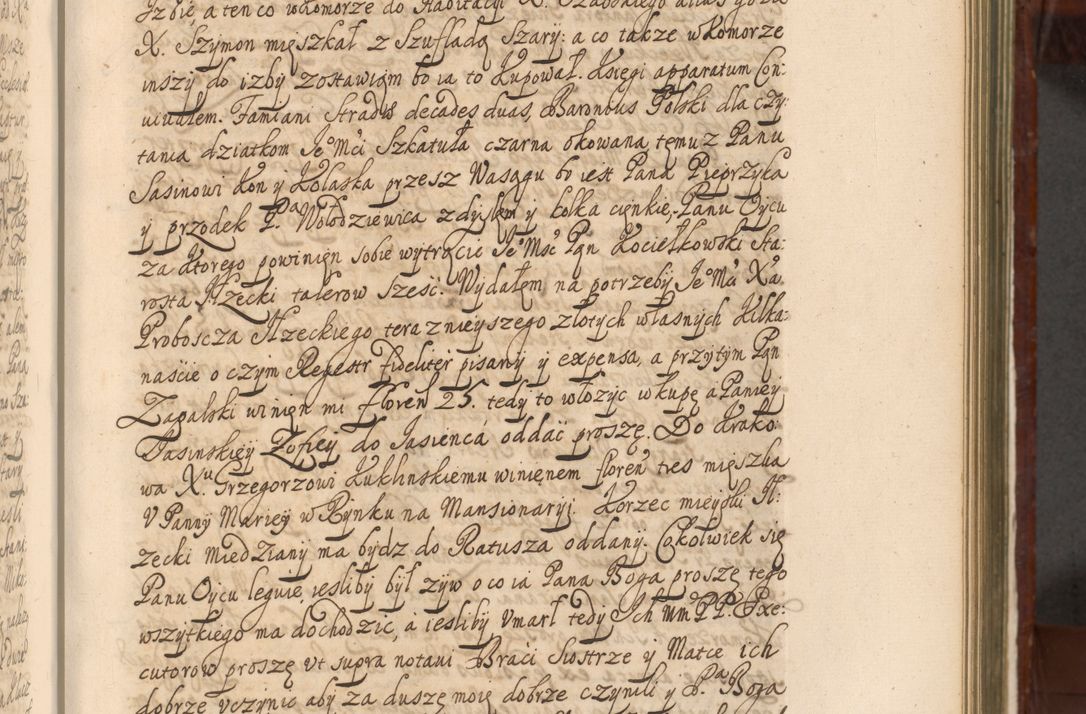 Izbie a ten co w komorze do Habitacyi X. Szadskiego alias gdzie
X. Szymon mięszkał z Szufladą Szary: a co także w komorze
inszy do izby zostawiąm bo ia to kupował. Księgi apparatum Con:
uiualem. Famiani Stradę decades duas, Baronius Polski dla czy:
tania dziatkom Jeº Mci Szkatuła czarna okowana temu z Panu
Sasinowi koń y kolaska przesz Wasągu bo iest Pana Pieprzyka
y przodek P.ª Wołodziewica z dyslem y kolka cięnkie, Panu Oycu
za ktorego powinien sobie wytrącic Jeº Msc Pąn Kociełkowski Sta:
rosta Iłzecki talerow szesc. Wydałem na potrzeby Jeº Mci Xª
Proboscza Iłzeckiego teraznieyszego złotych własnych kilka:
nascie o czym Regestr fideliter pisany y expensa, a przytym Pąn
Zagalski winien mi floren 25. tedy to włozyc w kupę a Panney
Dasinskiey Zofiey do Jasienca oddać proszę. Do krako:
wa X.u Grzegorzowi Kuklinskiemu winienem floren tres mięszka
V Panny Mariey w Rynku na Mansionaryi. Korzec mieyski Ił:
zecki Miedziany ma bydz do Ratusza oddany. Cokolwiek się
Panu Oycu leguie, iesliby był zyw o co ia Pana Boga proszę tego
wszytkiego ma dochodzic, a iesliby Vmarł tedy Ich mm PP. Exe:
cutorow proszę vt supra notaui Braci Siostrze y Matce ich
dobrze vczynic aby za duszę moię dobrze czynili y P.ª Boga